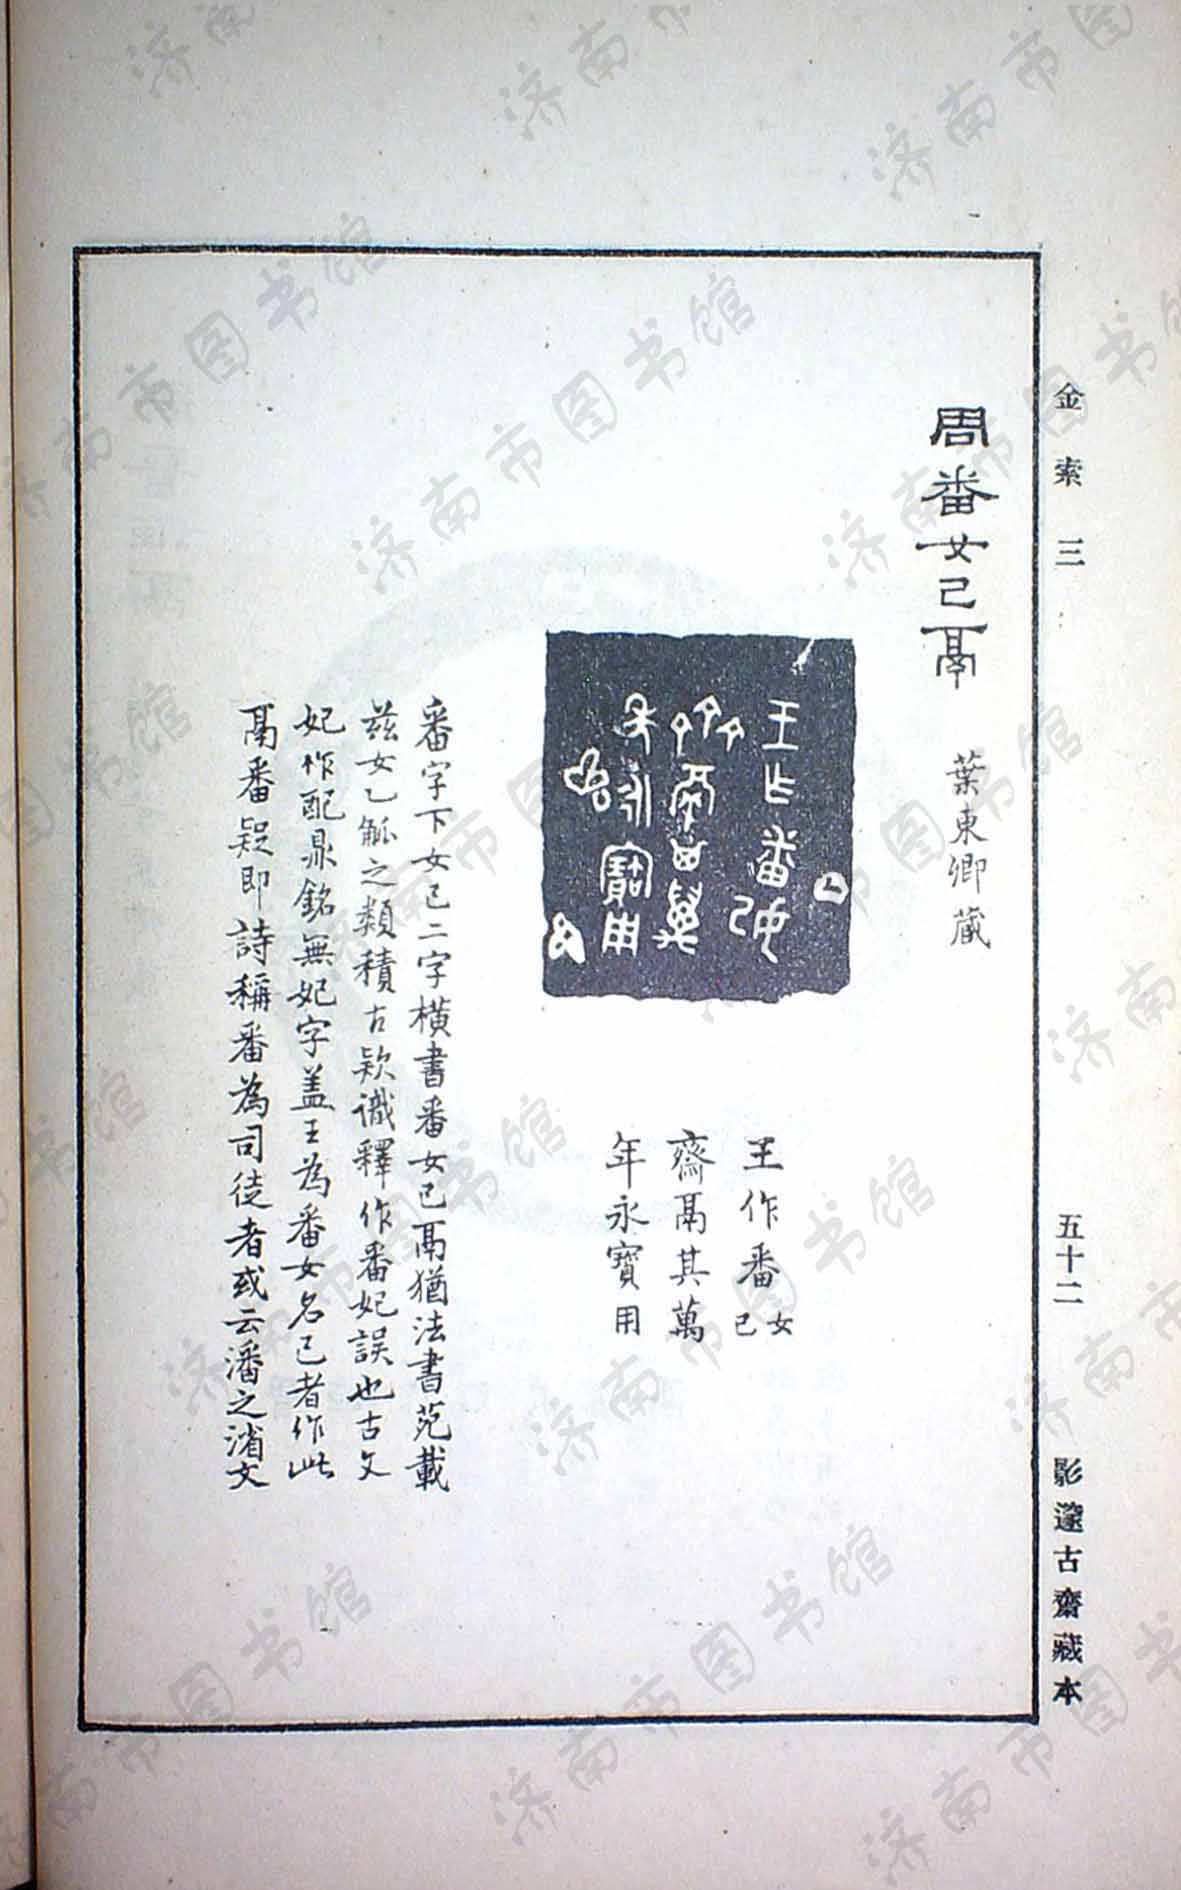 金索三 五十二 影邃古齋藏本
周番女己鬲 葉東卿藏
王作番女己
齋鬲其萬
年永寶用
番字下女己二字橫書番女己鬲猶法書苑載
茲女乙觚之類積古款識釋作番妃誤也古文
妃作配鼎銘無妃字盖王為番女名己者作此
鬲番疑即詩稱番為司徒者或云潘之渻文
济南市图书馆